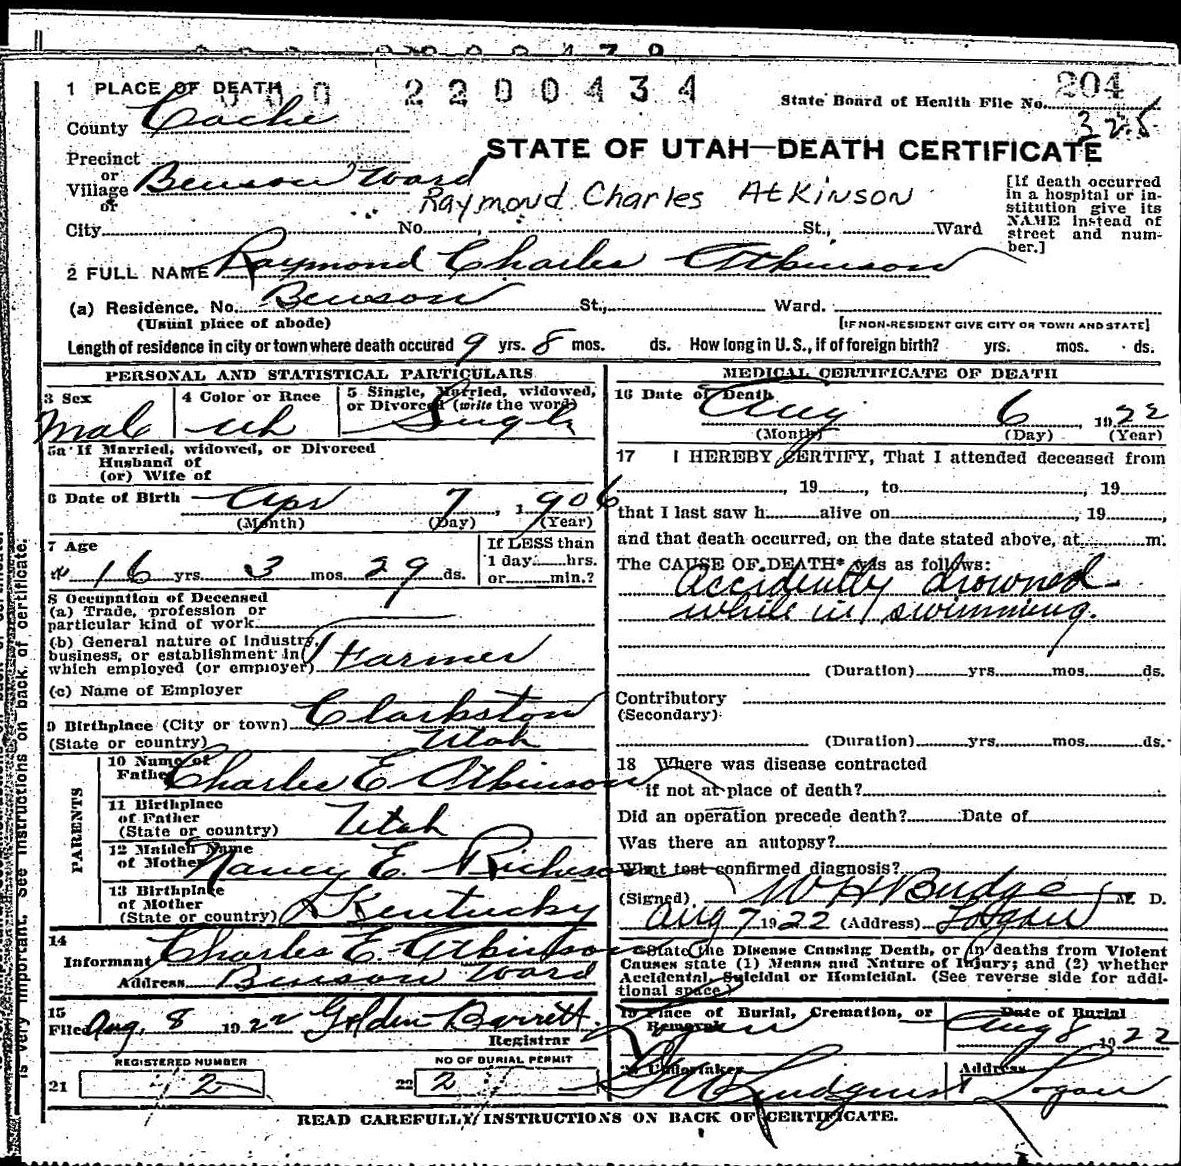 1 PLACE OF DEATH
2200434
State Board of Health File No. 204
325
County Cache
STATE OF UTAH—DEATH CERTIFICATE
Precinct
or
Village Benson Ward
or
Raymond Charles Atkinson
City No. , St., Ward
[If death occurred in a hospital or institution give its NAME instead of street and number.]
2 FULL NAME Raymond Charles Atkinson
(a) Residence. No. Benson St., Ward.
(Usual place of abode) [IF NON-RESIDENT GIVE CITY OR TOWN AND STATE]
Length of residence in city or town where death occured 9 yrs. 8 mos. ds. How long in U.S., if of foreign birth? yrs. mos. ds.
PERSONAL AND STATISTICAL PARTICULARS
3 Sex
Male
4 Color or Race
wh
5 Single, Married, widowed, or Divorced (write the word)
Single
5a If Married, widowed, or Divorced
Husband of
(or) Wife of
6 Date of Birth Apr 7, 1906
(Month) (Day) (Year)
7 Age
16 yrs. 3 mos. 29 ds.
If LESS than
1 day hrs.
or min.?
8 Occupation of Deceased
(a) Trade, profession or
particular kind of work
(b) General nature of industry,
business, or establishment in
which employed (or employer) Farmer
(c) Name of Employer
9 Birthplace (City or town) Clarkston
(State or country) Utah
PARENTS
10 Name of
Father Charles E Atkinson
11 Birthplace
of Father
(State or country) Utah
12 Maiden Name
of Mother Nancy E.
13 Birthplace
of Mother
(State or country) Kentucky
14
Informant Charles E. Atkinson
Address Benson Ward
15
Filed Aug. 8 1922 Golden Barrett
Registrar
REGISTERED NUMBER
21 12
NO OF BURIAL PERMIT
22 2
MEDICAL CERTIFICATE OF DEATH
16 Date of Death
Aug 6, 1922
(Month) (Day) (Year)
17 I HEREBY CERTIFY, That I attended deceased from
, 19 , to , 19
that I last saw h alive on , 19 ,
and that death occurred, on the date stated above, at m.
The CAUSE OF DEATH* was as follows:
Accidently drowned
while in swimming.
(Duration) yrs. mos. ds.
Contributory
(Secondary)
(Duration) yrs. mos. ds.
18 Where was disease contracted
if not at place of death?
Did an operation precede death? Date of
Was there an autopsy?
What test confirmed diagnosis?
(Signed) W H Budge M. D.
Aug 7 1922 (Address) Logan
*State the Disease Causing Death, or in deaths from Violent
Causes state (1) Means and Nature of Injury; and (2) whether
Accidental, Suicidal or Homicidal. (See reverse side for addi-
tional space.)
19 Place of Burial, Cremation, or
Removal Logan
Date of Burial
Aug 8 1922
20 Undertaker
Lindquist
Address
Logan
READ CAREFULLY INSTRUCTIONS ON BACK OF CERTIFICATE.
is very important. See instructions on back of certificate.